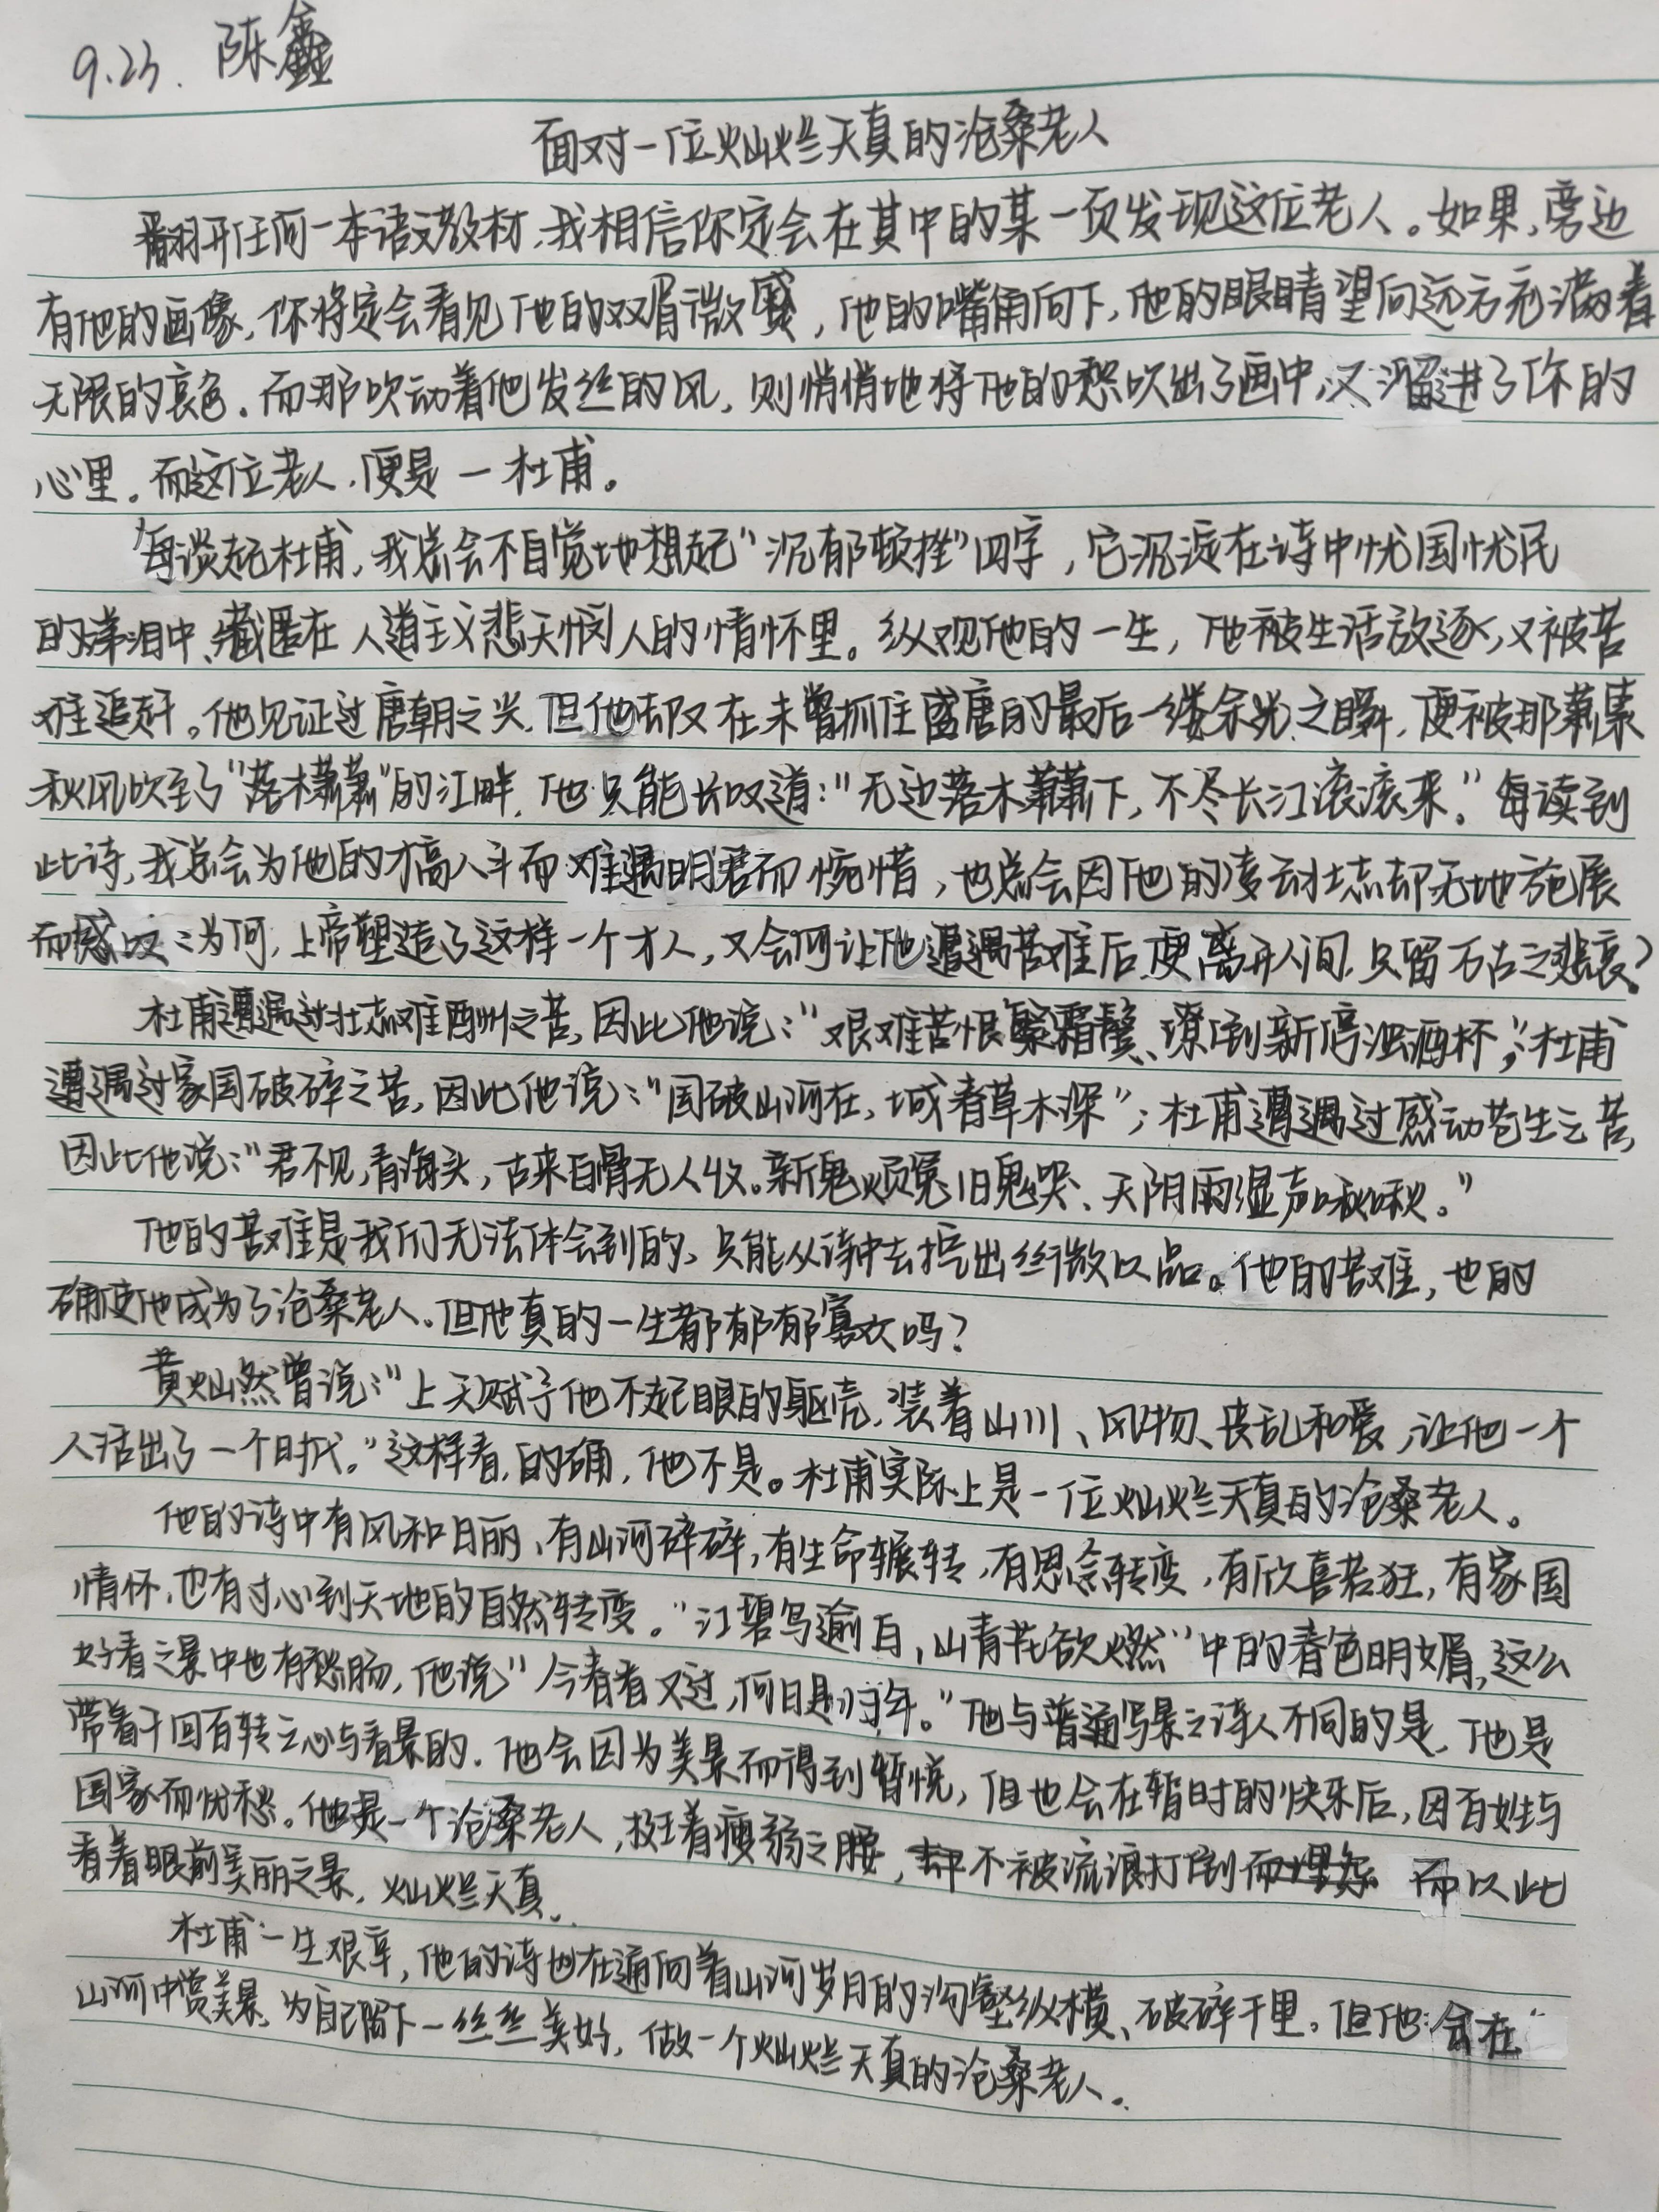 9.23. 陈鑫
面对一位灿烂天真的沧桑老人
翻开任何一本语文教材,我相信你定会在其中的某一页发现这位老人。如果,旁边
有他的画像,你将定会看见他的双眉微蹙,他的嘴角向下,他的眼睛望向远方充满着
无限的哀色。而那吹动着他发丝的风,则悄悄地将他的愁吹出了画中,又溜进了你的
心里。而这位老人,便是一杜甫。
每谈起杜甫,我总会不自觉地想起"沉郁顿挫"四字,它沉淀在诗中忧国忧民
的涕泪中、藏匿在人道主义悲天悯人的情怀里。纵观他的一生,他被生活放逐,又被苦
难追奸。他见证过唐朝之兴,但他却又在未曾抓住盛唐的最后一缕余光之瞬,便被那萧索
秋风吹到了"落木萧萧"的江畔,他只能长叹道:"无边落木萧萧下,不尽长江滚滚来。"每读到
此诗,我总会为他的才高八斗而难遇明君而惋惜,也总会因他的凌云壮志却无地施展
而感叹:为何,上帝塑造了这样一个才人,又会何让他遭遇苦难后,便离开人间,只留万古之悲哀?
杜甫遭遇过壮志难酬之苦,因此他说:"艰难苦恨繁霜鬓、潦倒新停浊酒杯";杜甫
遭遇过家国破碎之苦,因此他说:"国破山河在,城春草木深";杜甫遭遇过感动苍生之苦,
因此他说:"君不见,青海头,古来白骨无人收。新鬼烦冤旧鬼哭、天阴雨湿声啾啾。"
他的苦难是我们无法体会到的、只能从诗中去挖出丝微以品。他的苦难,也的
确使他成为了沧桑老人。但他真的一生都郁郁寡欢吗?
黄灿然曾说:"上天赋予他不起眼的躯壳,装着山川、风物、丧乱和爱,让他一个
人活出了一个时代。"这样看,的确,他不是。杜甫实际上是一位灿烂天真的沧桑老人。
他的诗中有风和日丽,有山河碎碎,有生命辗转,有思念转变,有欣喜若狂,有家国
情怀,也有寸心到天地的自然转变。"江碧鸟逾白,山青花欲燃"中的春色明媚,这么
好看之景中也有愁肠,他说"今春看又过,何日是归年。"他与普通写景之诗人不同的是,他是
带着千回百转之心与看景的。他会因为美景而得到暂悦,但也会在暂时的快乐后,因百姓与
国家而忧愁。他是一个沧桑老人,挺着瘦弱之腰,却不被流浪打倒而埋怨 而以此
看着眼前美丽之景,灿烂天真。
杜甫一生艰辛,他的诗也在通向着山河岁月的沟壑纵横、破碎千里。但他会在
山河中赏美景,为自己留下一丝丝美好,做一个灿烂天真的沧桑老人。